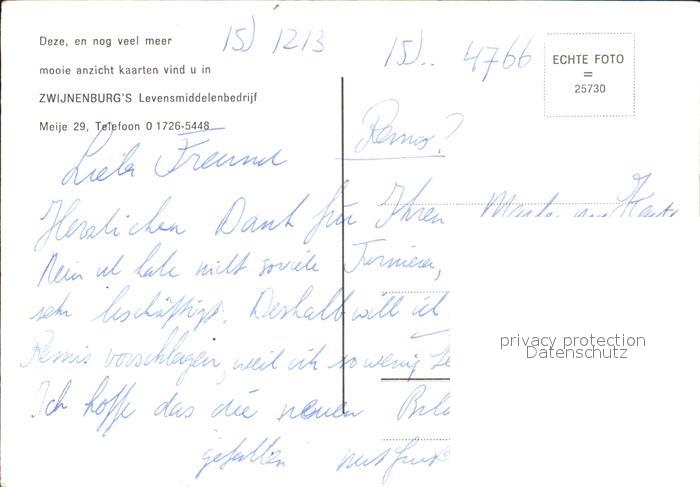 Deze, en nog veel meer
mooie anzicht kaarten vind u in
ZWIJNENBURG'S Levensmiddelenbedrijf
Meije 29, Telefoon 0 1726-5448
15) 1213
15).. 4766
ECHTE FOTO
=
25730
Remis?
Lieber Freund
Herzlichen Dank für Ihren
Nein ich habe nicht soviele Turniere,
sehr beschäftigt. Deshalb will ich
Remis vorschlagen, weil ich so wenig
Ich hoffe das die neuen
gefallen mit Gruß
privacy protection
Datenschutz